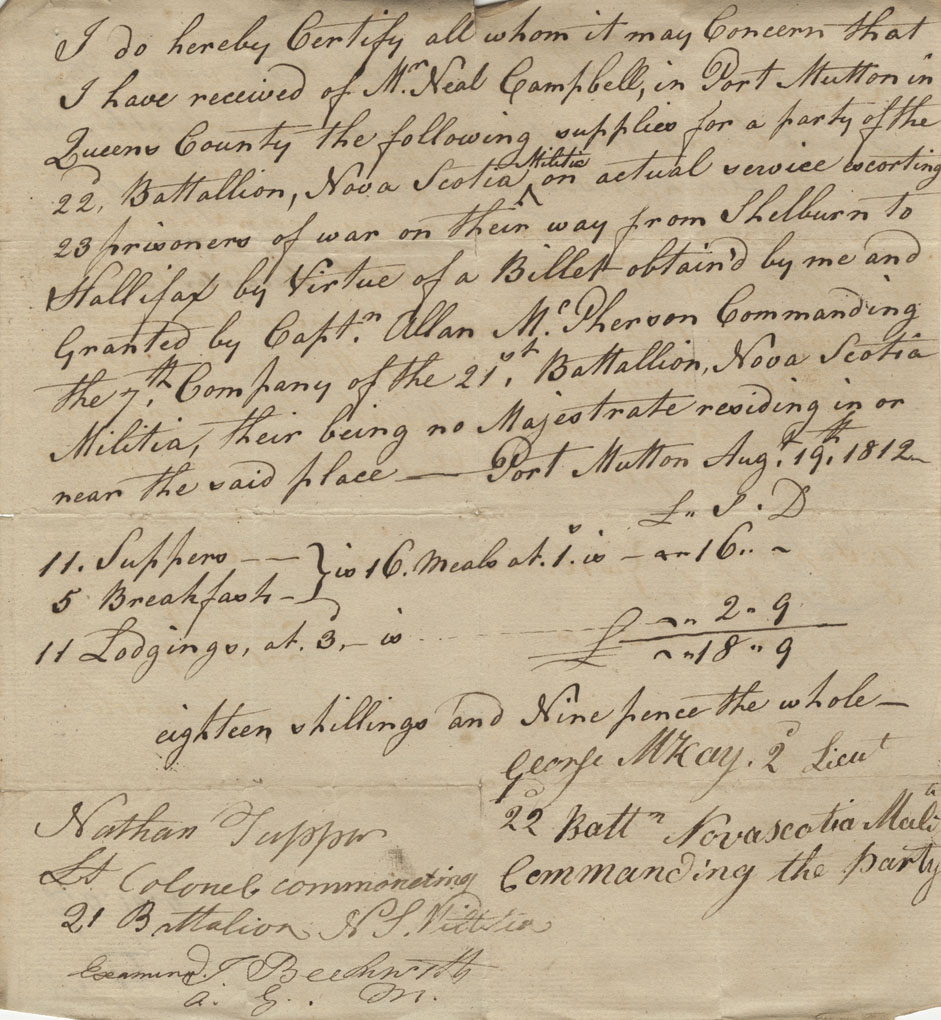 I do hereby Certify all whom it may Concern that
I have received of Mr. Neal Campbell, in Port Mutton in
Queens County the following supplies for a party of the
22d, Battallion, Nova Scotia Militia on actual service escorting
23 prisoners of war on their way from Shelburn to
Hallifax by Virtue of a Billet obtain'd by me and
Granted by Captn. Allan Mc. Pherson Commanding
the 7th. Company of the 21st. Battallion, Nova Scotia
Militia, their being no Majestrate residing in or
near the said place — Port Mutton Augt. 19th. 1812 —
£ " S . D
11. Suppers — — } is 16. meals at. 1s. is — " 16 " ~
5 Breakfasts —
11 Lodgings, at. 3d, — is ~ " 2 " 9
£ ~ " 18 " 9
eighteen shillings and Nine pence the whole —
George McKay. 2d Lieut
22d Battn Novascotia Malia
Commanding the party
Nathan Tupper
Lt Colonel commoneting
21 Battalion N S. Militia
Examined. T. Beckwith
A. G. M.